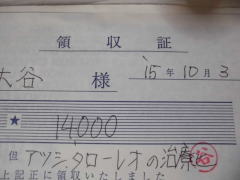 領収証
大谷 様 15年10月3
★ 14000
但 アツシ、タローレオの治療
上記正に領収いたしました
谷